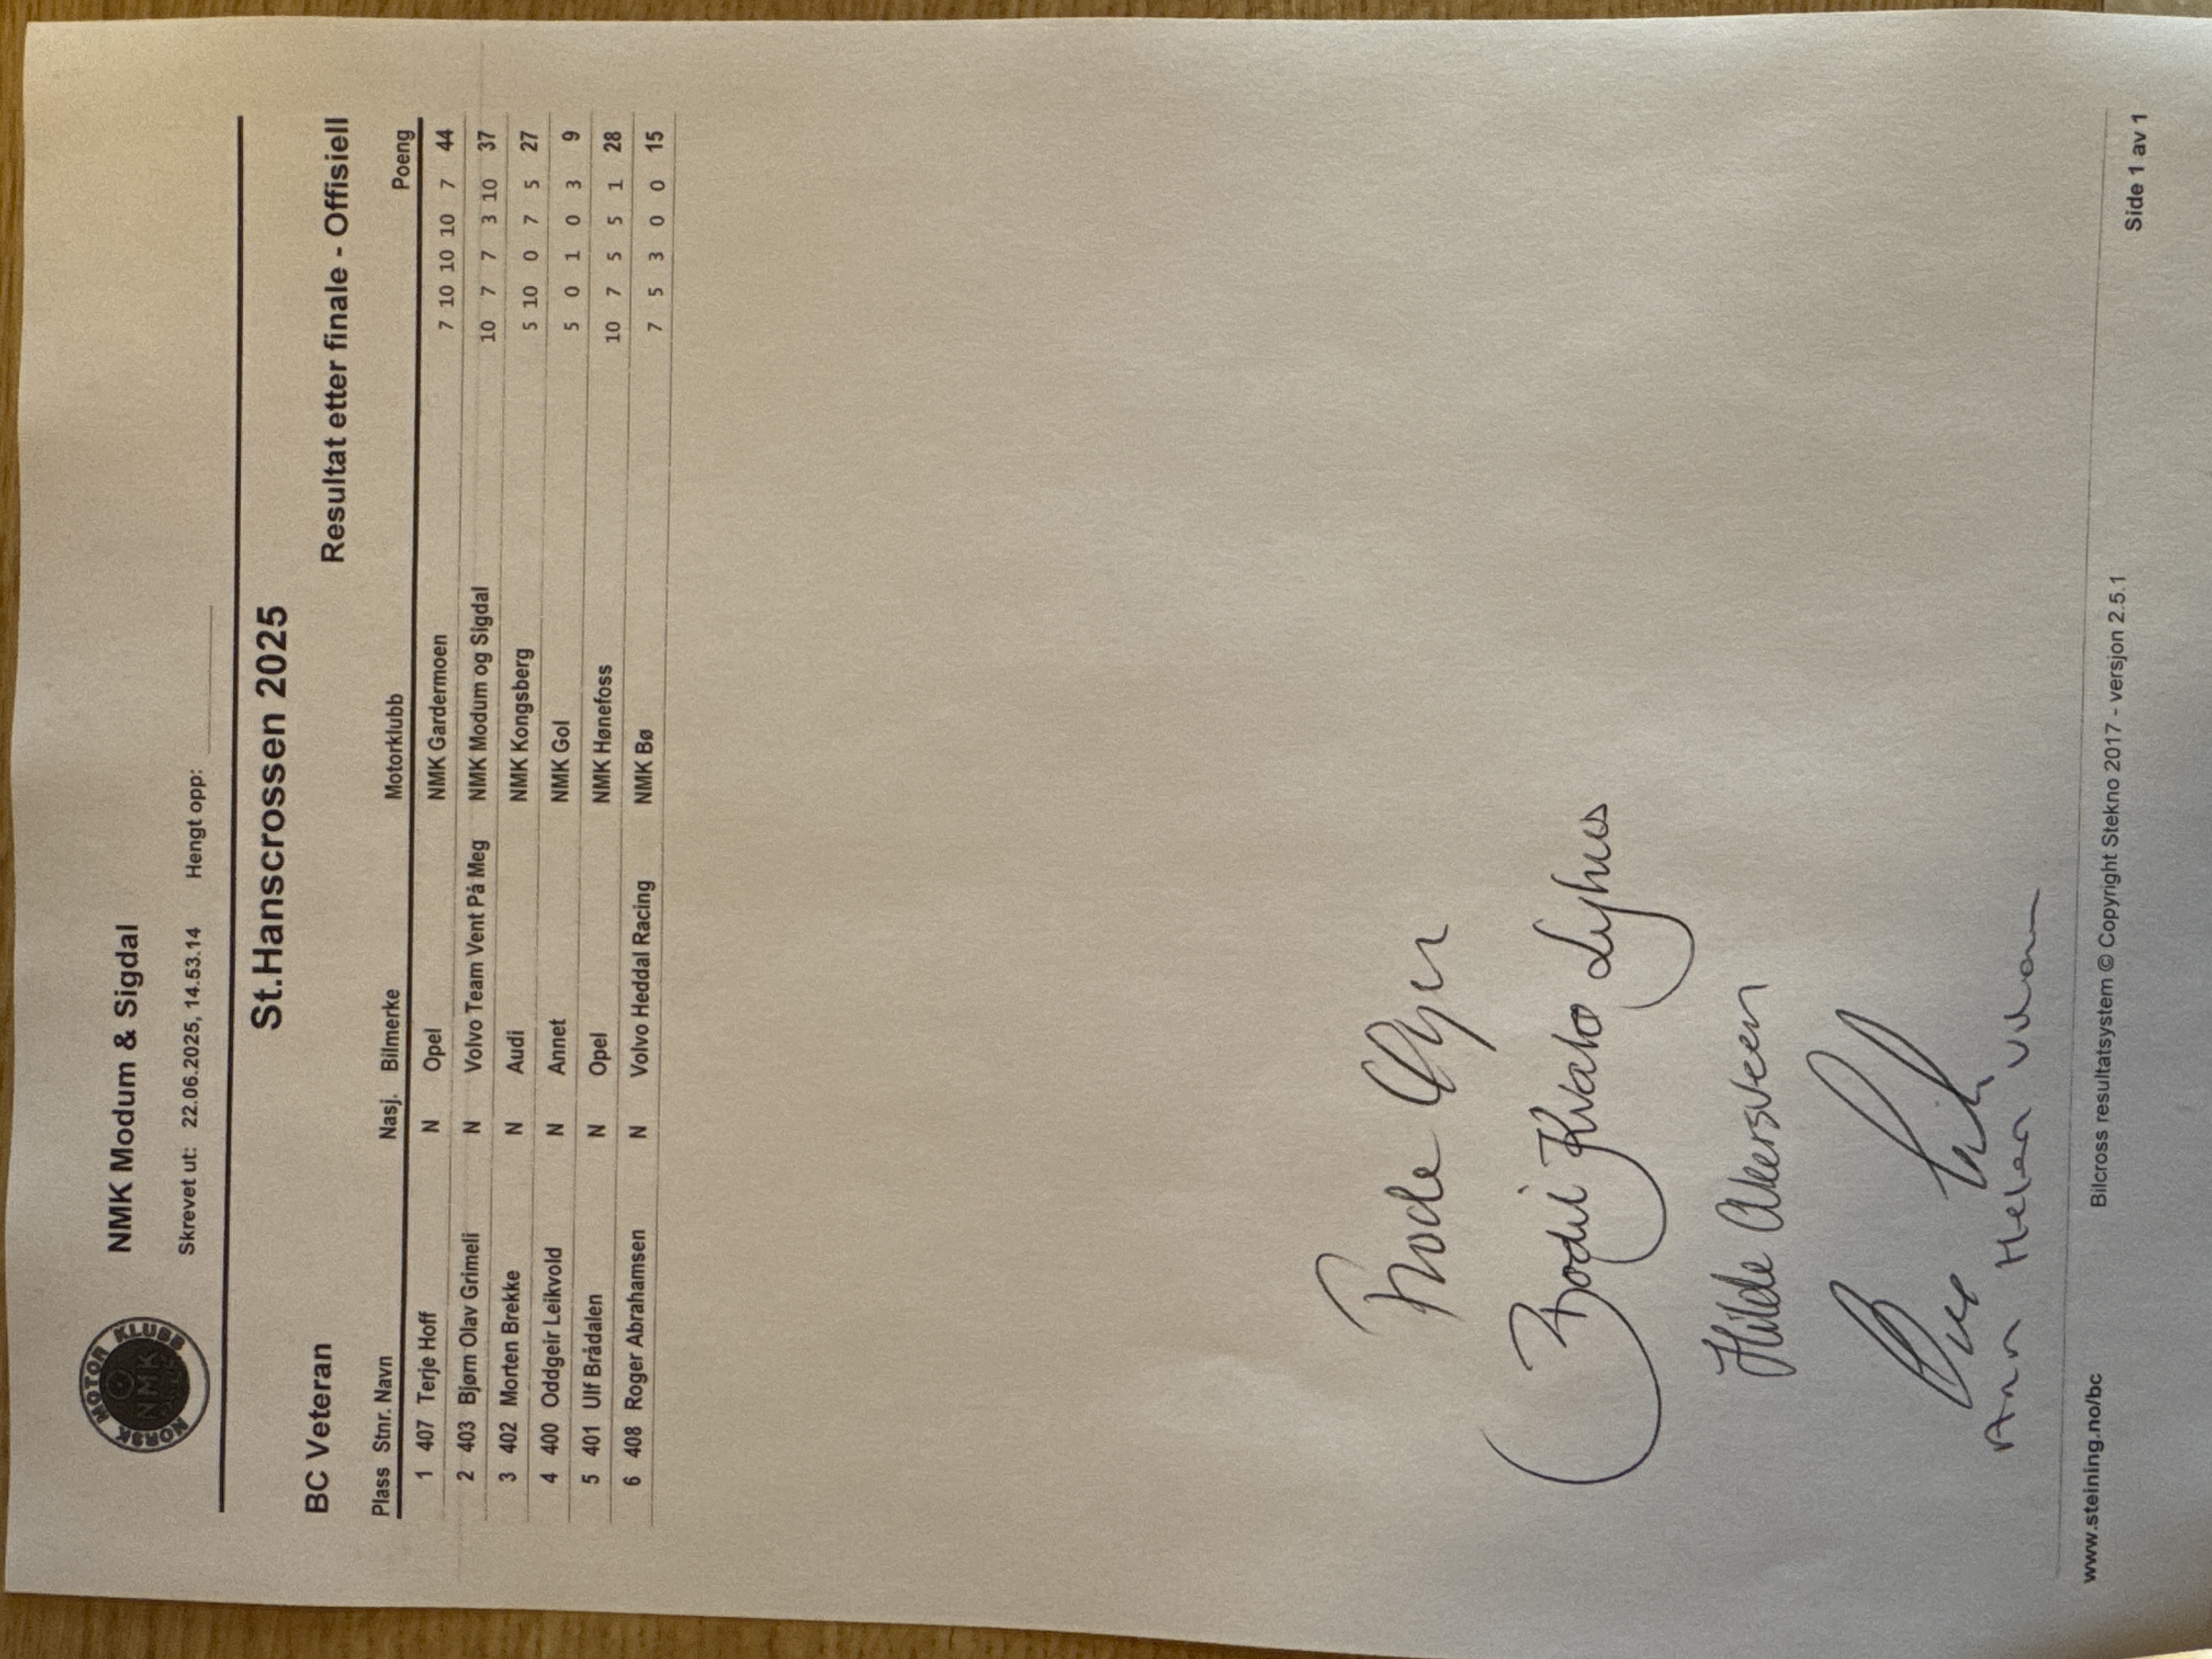 NORSK MOTOR KLUBB
NMK
NMK Modum & Sigdal
Skrevet ut: 22.06.2025, 14.53.14 Hengt opp:
St.Hanscrossen 2025
BC Veteran Resultat etter finale - Offisiell
Plass Stnr. Navn Nasj. Bilmerke Motorklubb Poeng
1 407 Terje Hoff N Opel NMK Gardermoen 7 10 10 10 7 44
2 403 Bjørn Olav Grimeli N Volvo Team Vent På Meg NMK Modum og Sigdal 10 7 7 3 10 37
3 402 Morten Brekke N Audi NMK Kongsberg 5 10 0 7 5 27
4 400 Oddgeir Leikvold N Annet NMK Gol 5 0 1 0 3 9
5 401 Ulf Brådalen N Opel NMK Hønefoss 10 7 5 5 1 28
6 408 Roger Abrahamsen N Volvo Heddal Racing NMK Bø 7 5 3 0 0 15
Frode
Bodil Kvaho Lyhus
Hilde Akersveen
Ann Helen
www.steining.no/bc Bilcross resultatsystem © Copyright Stekno 2017 - versjon 2.5.1 Side 1 av 1